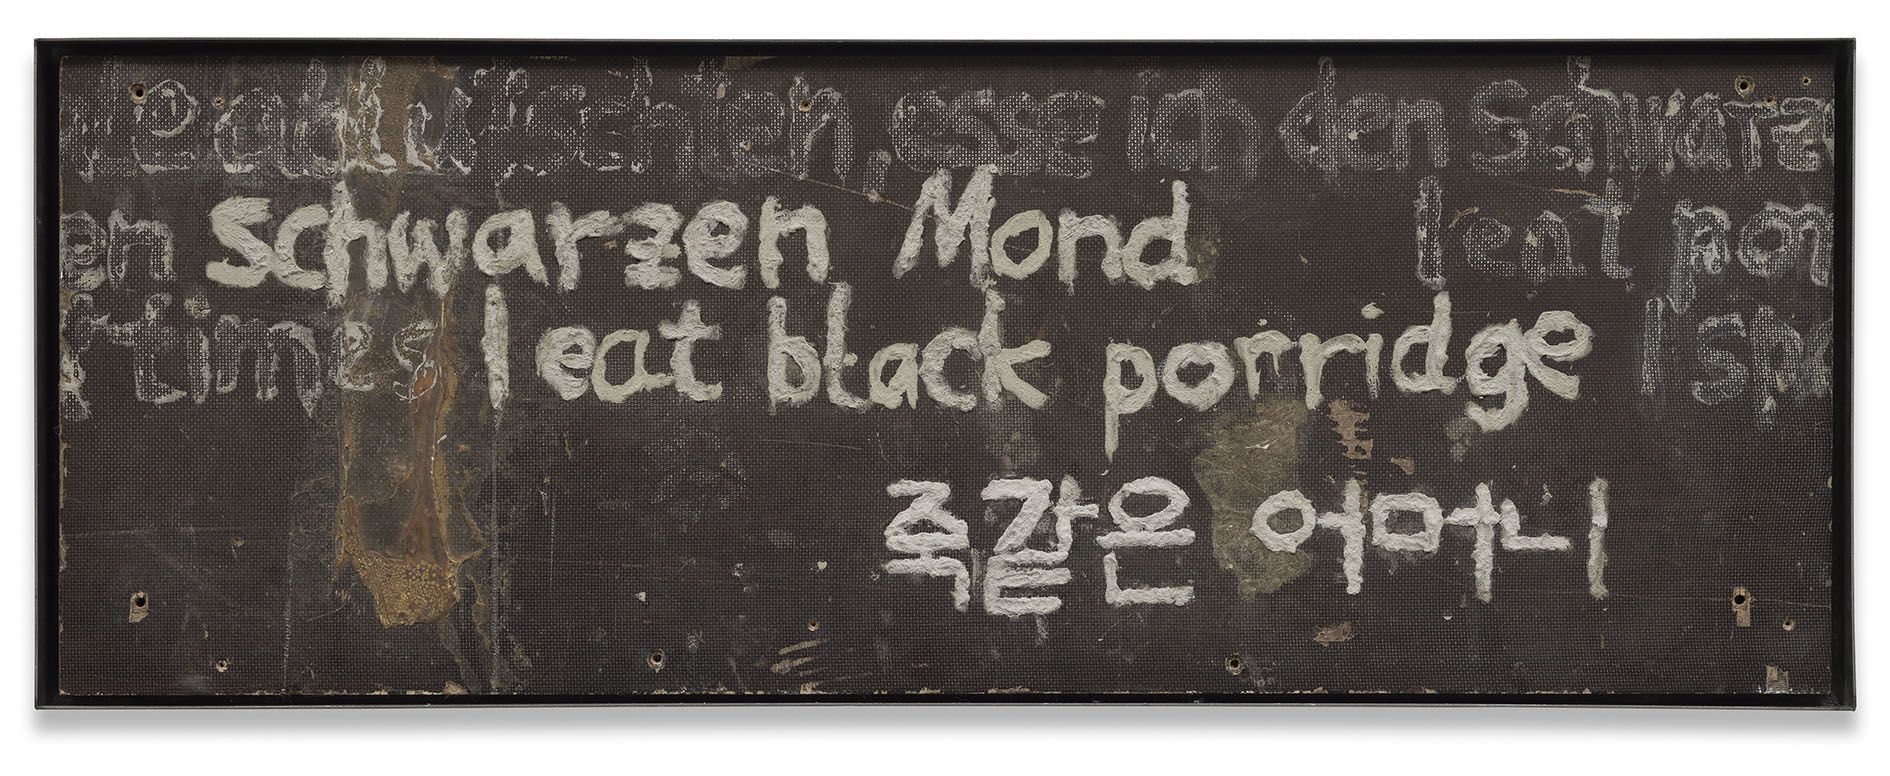 esse ich den Schwarze
en schwarzen Mond I eat
times I eat black porridge I
죽같은 어머니